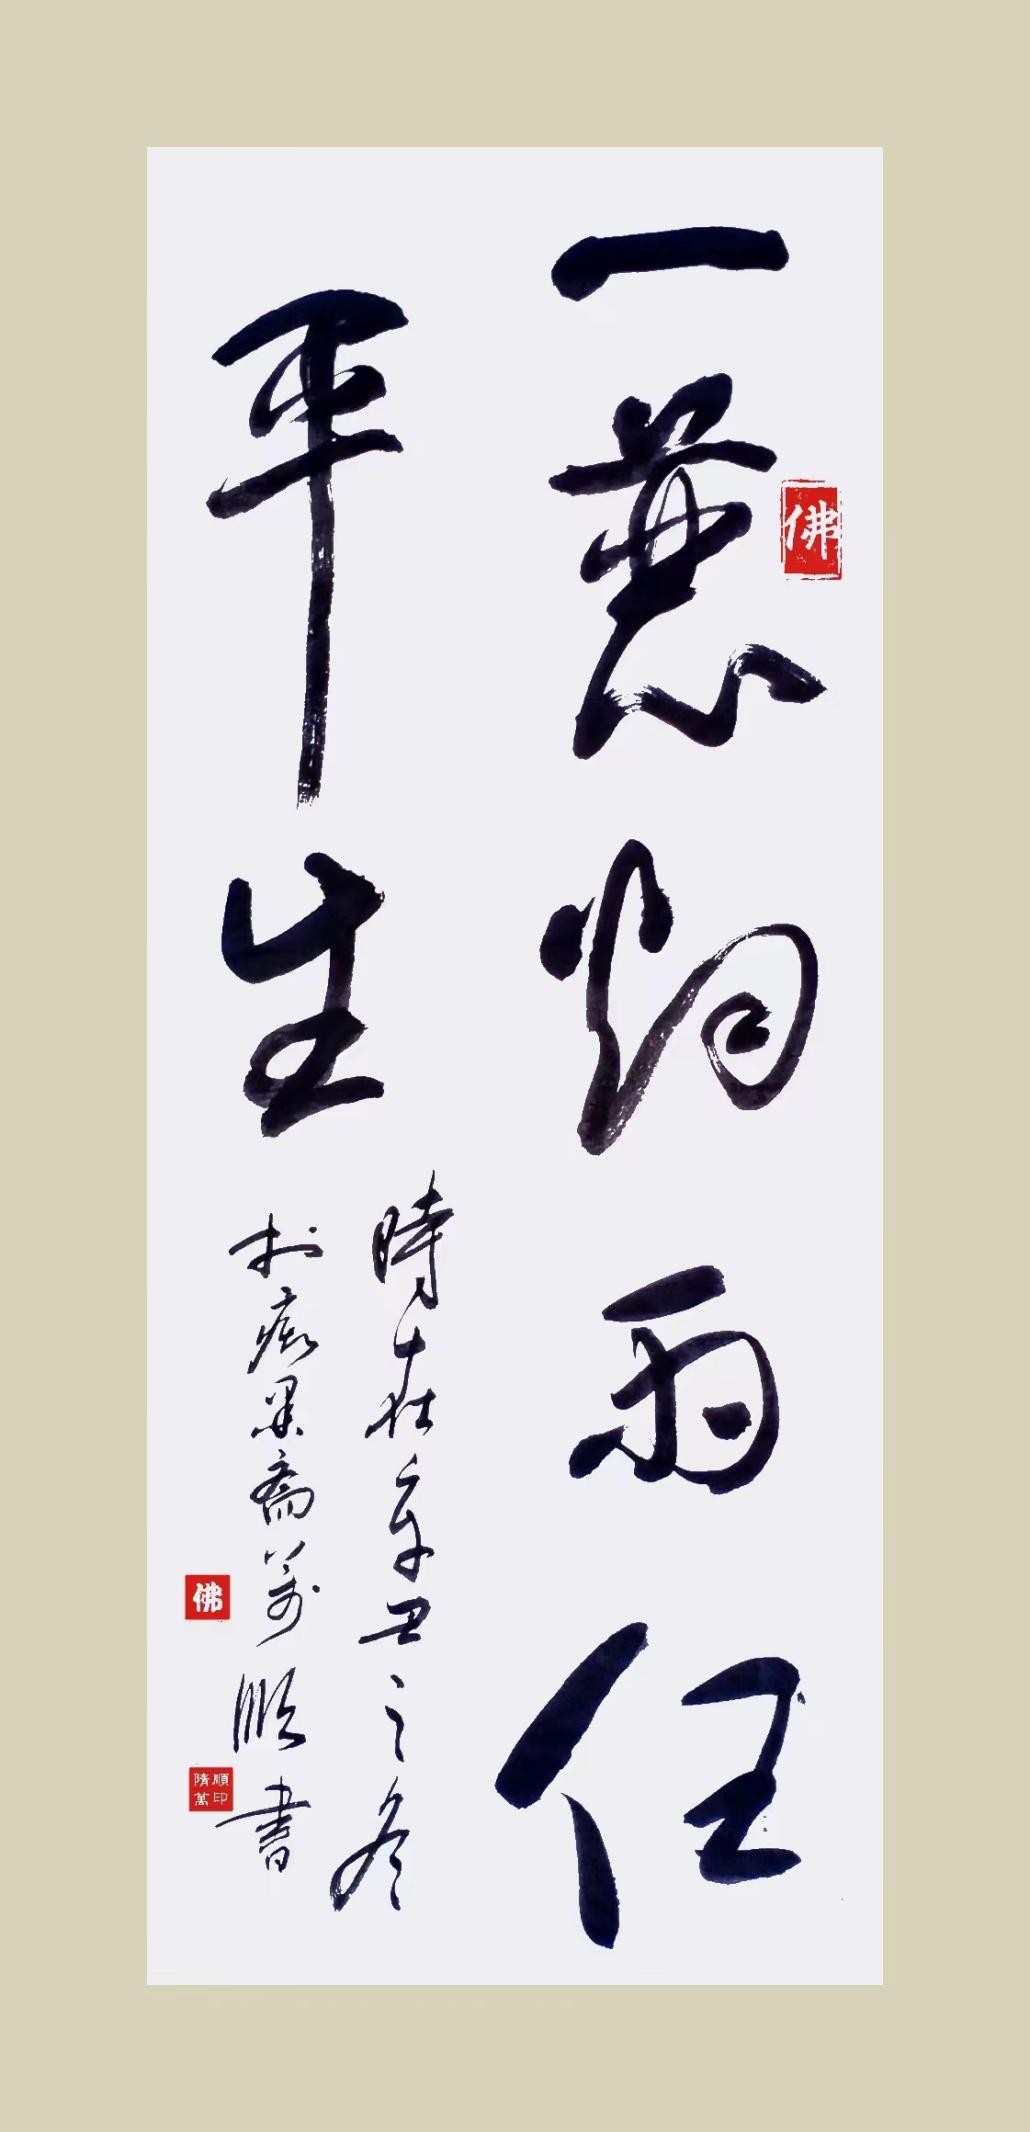 一蓑烟雨任
平生
時在辛丑之冬
於斋萬順書
佛
佛
隋萬順印